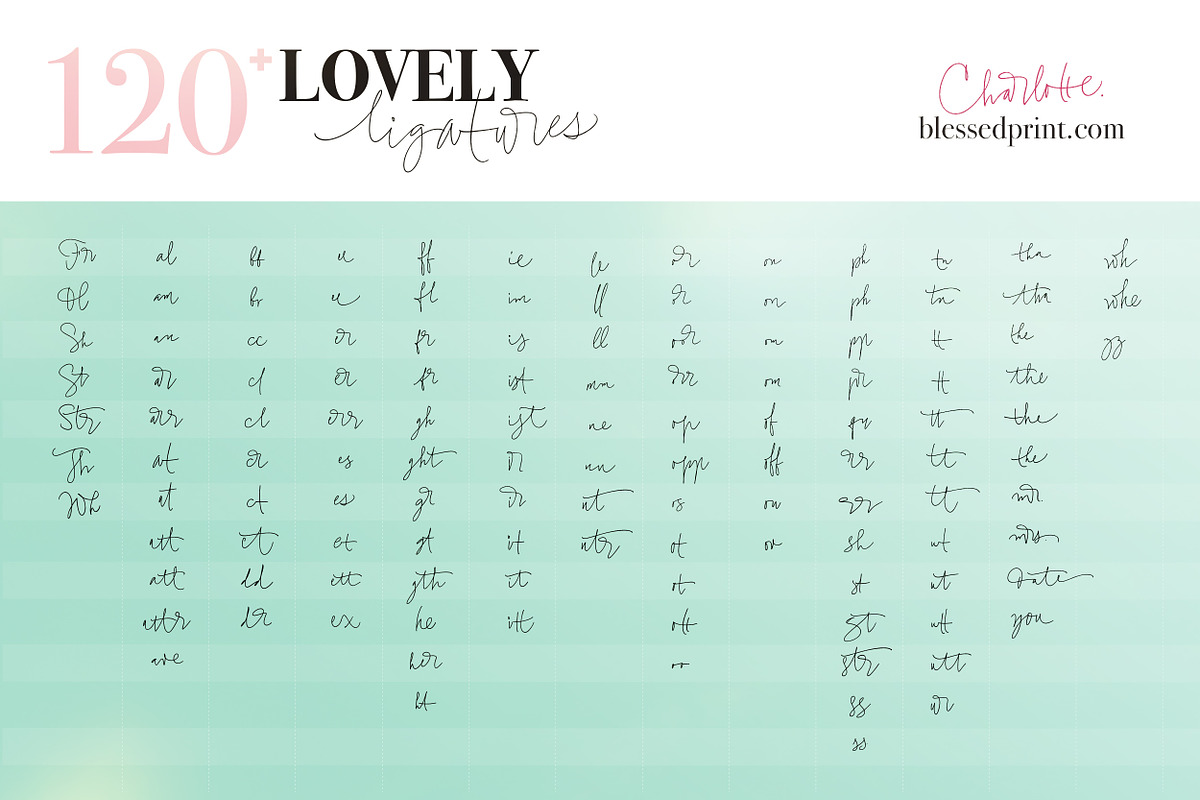 120+ LOVELY
ligatures
Charlotte.
blessedprint.com
Fr al ff ie le or on ph tn tha wh
am br fl im ll or on ph tn tha whe
Sh an cc er fr is ll on pp tt the zz
St ar cl er fr ist mm orr om pr tt the
Str arr cl err gh ist ne op of tt the
Th at cr es ght ir nn opp off rr tt the
Wh at ct es gr ir nt os ou rr tt mr
att ct et gt it ntr ot sh ut mrs
att dd ett gth it ot st ut Date
attr dr ex he itt ott st utt you
ave her str utt
ht ss
ss